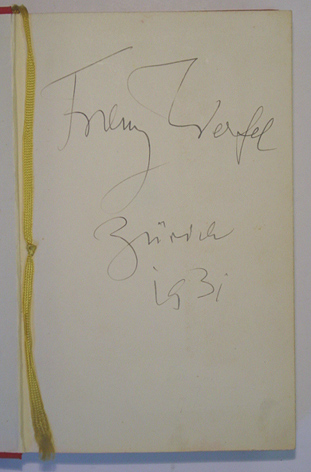 Franz Werfel
Zürich
1931